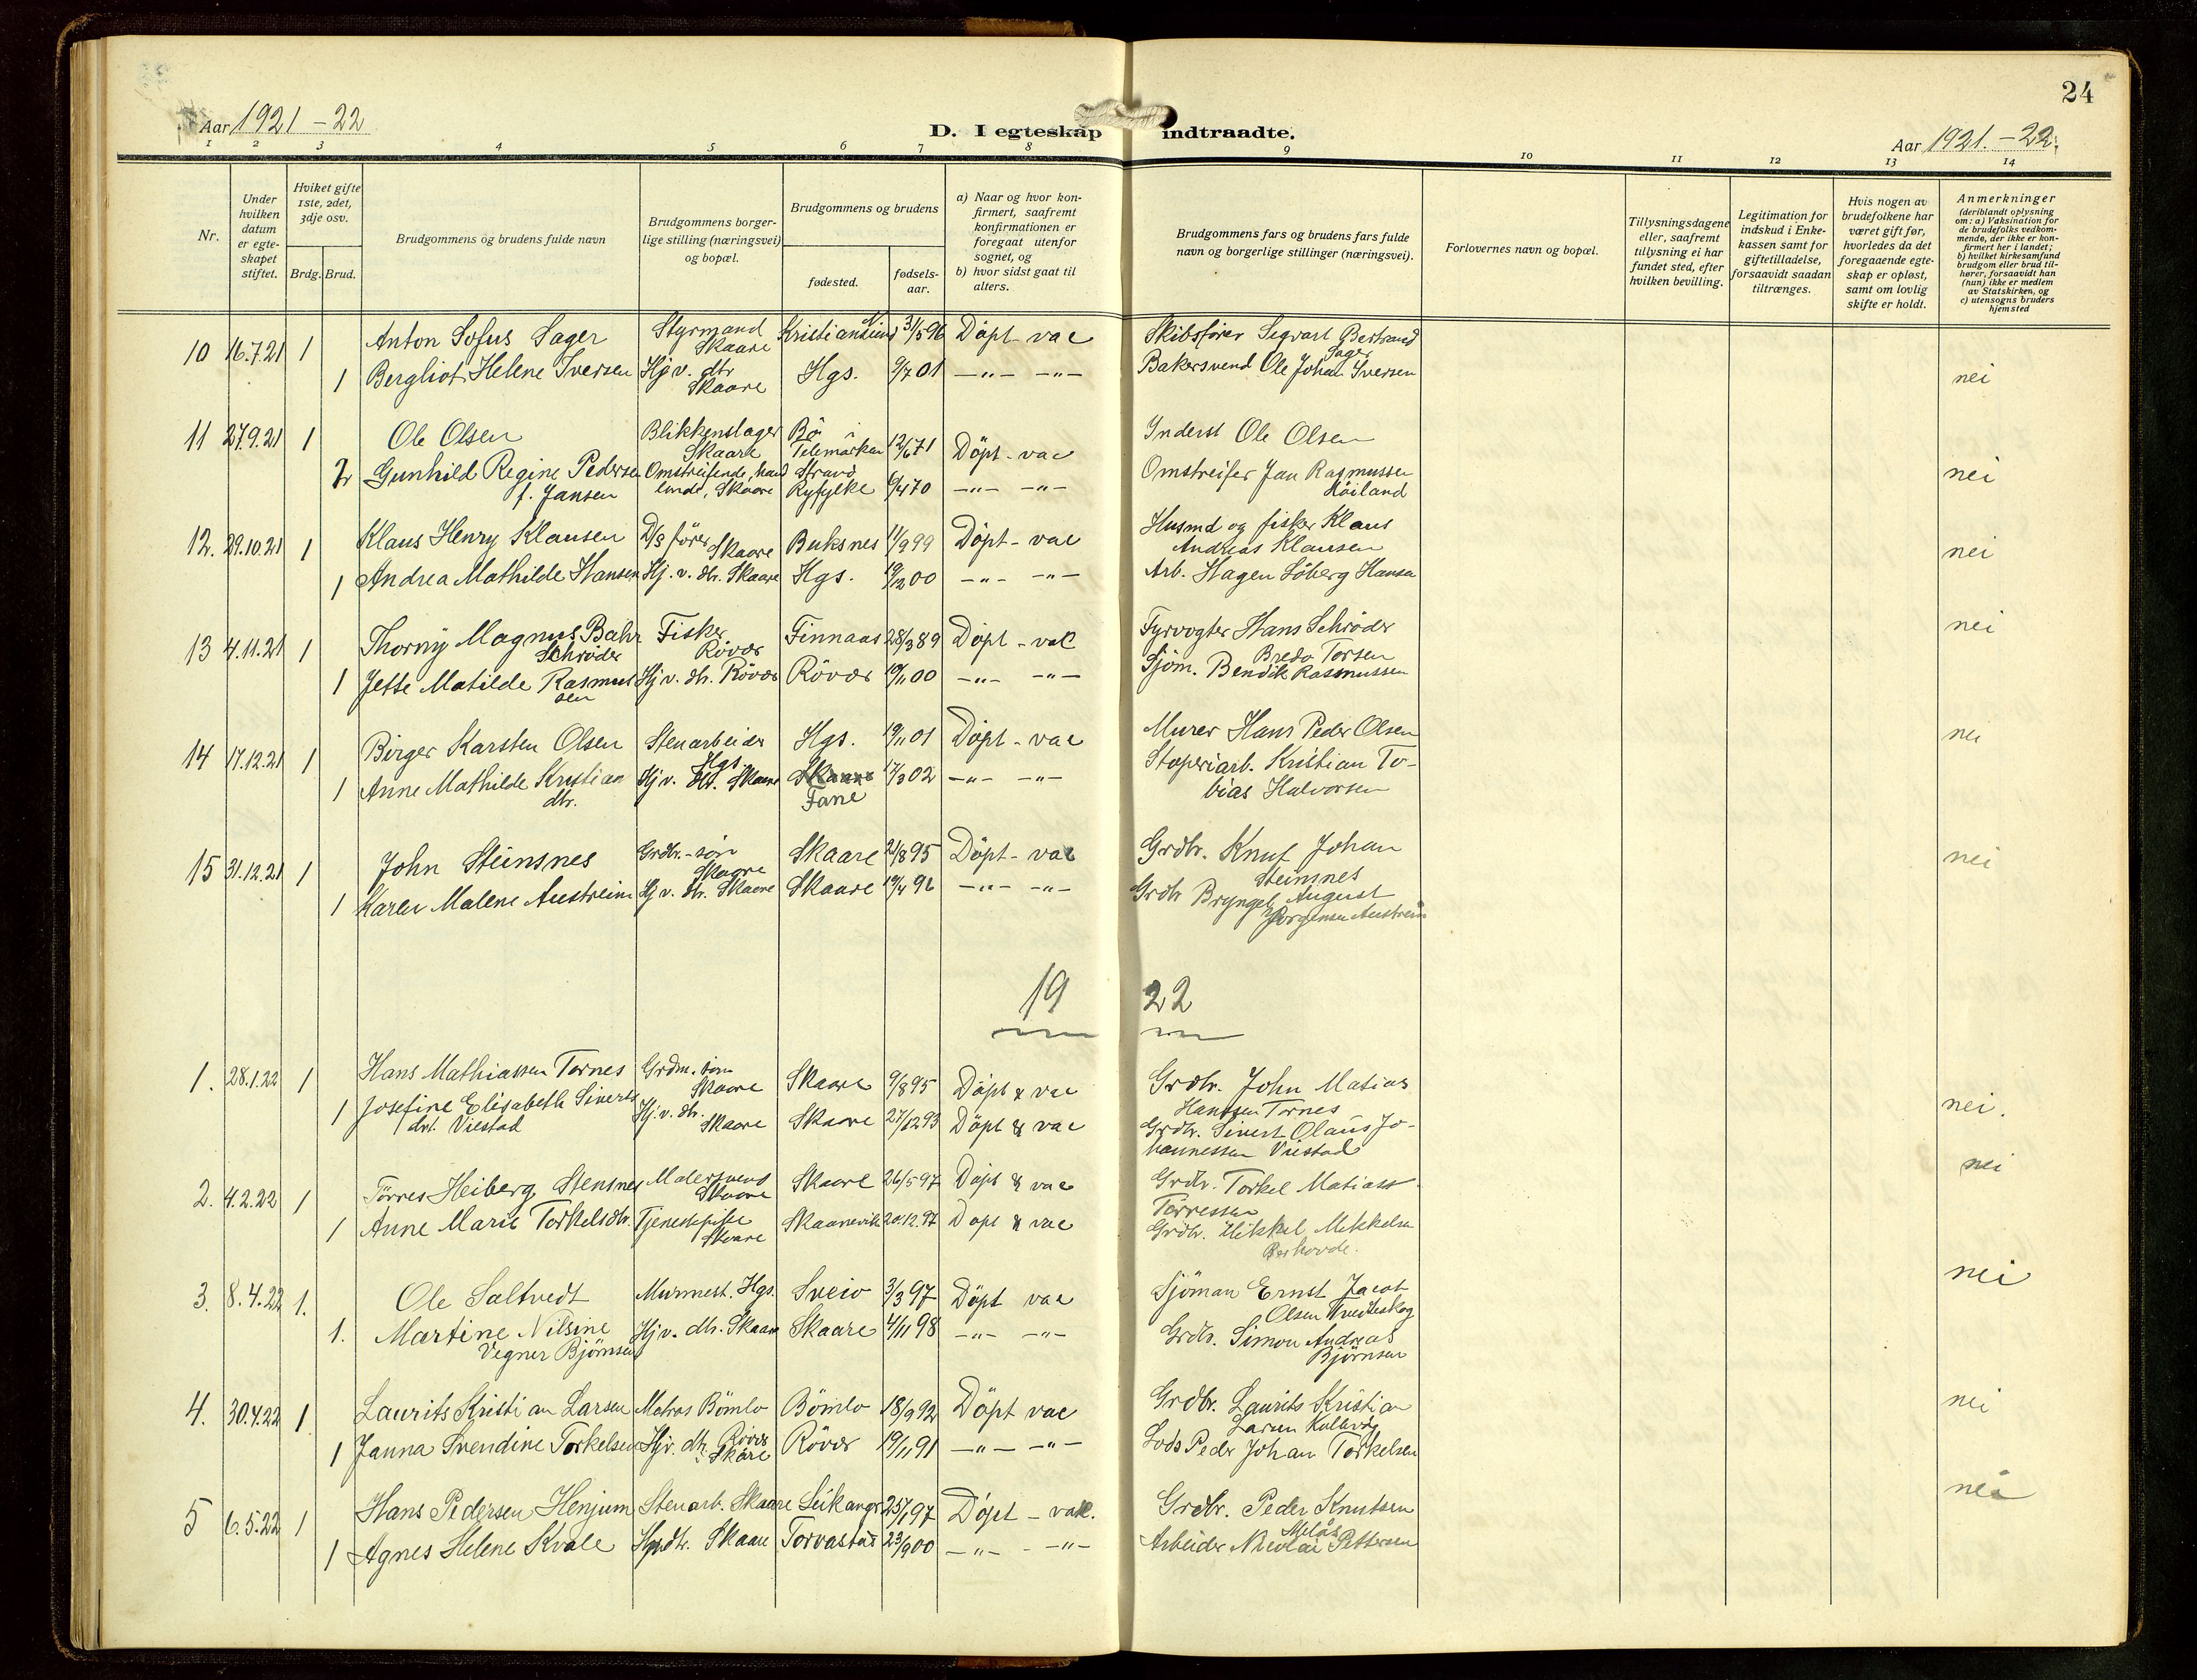 24
Aar 1921 - 22
D. I egteskap indtraadte.
Aar 1921. - 22.
1 2 3 4 5 6 7 8 9 10 11 12 13 14
Nr.
Under hvilken datum er egte-skapet stiftet.
Hviket gifte 1ste, 2det, 3dje osv.
Brdg. Brud.
Brudgommens og brudens fulde navn
Brudgommens borger-lige stilling (næringsvei) og bopæl.
Brudgommens og brudens
fødested.
fødsels-aar.
a) Naar og hvor kon-firmert, saafremt konfirmationen er foregaat utenfor sognet, og
b) hvor sidst gaat til alters.
Brudgommens fars og brudens fars fulde navn og borgerlige stillinger (næringsvei).
Forlovernes navn og bopæl.
Tillysningsdagene eller, saafremt tillysning ei har fundet sted, efter hvilken bevilling.
Legitimation for indskud i Enke-kassen samt for giftetilladelse, forsaavidt saadan tiltrænges.
Hvis nogen av brudefolkene har været gift før, hvorledes da det foregaaende egte-skap er opløst, samt om lovlig skifte er holdt.
Anmerkninger
(deriblandt oplysning om: a) Vaksination for de brudefolks vedkom-mende, der ikke er kon-firmert her i landet; b) hvilket kirkesamfund brudgom eller brud til-hører, forsaavidt han (hun) ikke er medlem av Statskirken, og c) utensogns bruders hjemsted
10 16.7.21 1 Anton Sofus Sager Styrmand Skaare Kristiansund N 31/5 96 Döpt - vac Skibsfører Segvart Bertrand Sager
1 Bergliot Helene Iversen Hj v. dtr Skaare Hgs. 9/7 01 -"- -"- Bakersvend Ole Johan Iversen nei
11 27.9.21 1 Ole Olsen Blikkenslager Skaare Bö Telemarken 12/6 71 Döpt - vac Inderst Ole Olsen
2 Gunhild Regine Pedersen f. Jansen Omstreifende, hand lende, Skaare Strand Ryfylke 6/4 70 -"- -"- Omstreifer Jan Rasmussen Höiland nei
12. 29.10.21 1 Klaus Henry Klausen D/S förer Skaare Buksnes 11/9 99 Döpt - vac Husmd og fisker Klaus Andreas Klausen
1 Andrea Mathilde Hansen Hj. v. dtr. Skaare Hgs. 19/12 00 -"- -"- Arb. Hagen Söberg Hansen nei
13 4.11.21 1 Thorny Magnus Bahr Schröder Fisker Rövær Finnaas 28/3 89 Döpt - vac Fyrvogter Hans Schröder Bredo Torsen nei
1 Jette Matilde Rasmussen Hj v. dtr. Rövær Rövær 19/11 00 -"- -"- Sjöm. Bendik Rasmussen
14 17.12.21 1 Birger Karsten Olsen Stenarbeider Hgs. Hgs. 19/11 01 Döpt - vac Murer Hans Peder Olsen nei
1 Anne Mathilde Kristian dtr. Hj v. dtr. Skaare Skaare Fane 17/3 02 -"- -"- Støperiarb. Kristian Tobias Halvorsen
15 31.12.21 1 John Steinsnes Grdbr.-søn Skaare Skaare 21/8 95 Döpt - vac Grdbr. Knut Johan Steinsnes nei
1 Karen Malene Austreim Hj v. dtr. Skaare Skaare 19/4 96 -"- -"- Grdbr Bryngel August Jørgensen Austreim
19 22
1. 28.1.22 1 Hans Mathiassen Tornes Grdm. søn Skaare Skaare 9/8 95 Döpt & vac Grdbr. John Matias Hanssen Tornes
1 Josefine Elisabeth Siverts drt. Viestad Hj. v. dtr. Skaare Skaare 27/12 93 Döpt & vac Grdbr. Sivert Olaus Johannessen Viestad nei.
2. 4.2.22 1 Törres Heiberg Stensnes Malersvend Skaare Skaare 26/5 97 Döpt & vac Grdbr. Torkel Matias Törressen nei
1 Anne Marie Torkelsdtr. Tjenestepike Skaare Skaanevik 20.12.97 Döpt & vac Grdbr. Mikkel Mikkelsen
3. 8.4.22 1. Ole Saltvedt Murmest. Hgs. Sveio 3/3 97 Döpt vac Sjöman Ernst Jacob Olsen nei
1. Martine Nilsine Vegner Björnsen Hj v. dtr. Skaare Skaare 4/11 98 -"- -"- Grdbr. Simon Andreas Björnsen
4. 30.4.22 1 Laurits Kristian Larsen Matros Bömlo Bömlo 18/9 92 Döpt vac Grdbr. Laurits Kristian Larsen nei
1 Janna Svendine Torkelsen Hj v. dtr. Rövær Skåre Rövær 19/11 91 -"- -"- Lods Peder Johan Torkelsen
5 6.5.22 1 Hans Pedersen Henjum Stenarb. Skaare Leikanger 25/1 97 Döpt - vakc. Grdbr. Peder Knutsen nei
1 Agnes Helene Kvale Hj v. dtr. Skaare Torvastad 23/9 00 -"- -"- Arbeider Nicolai Pettersen